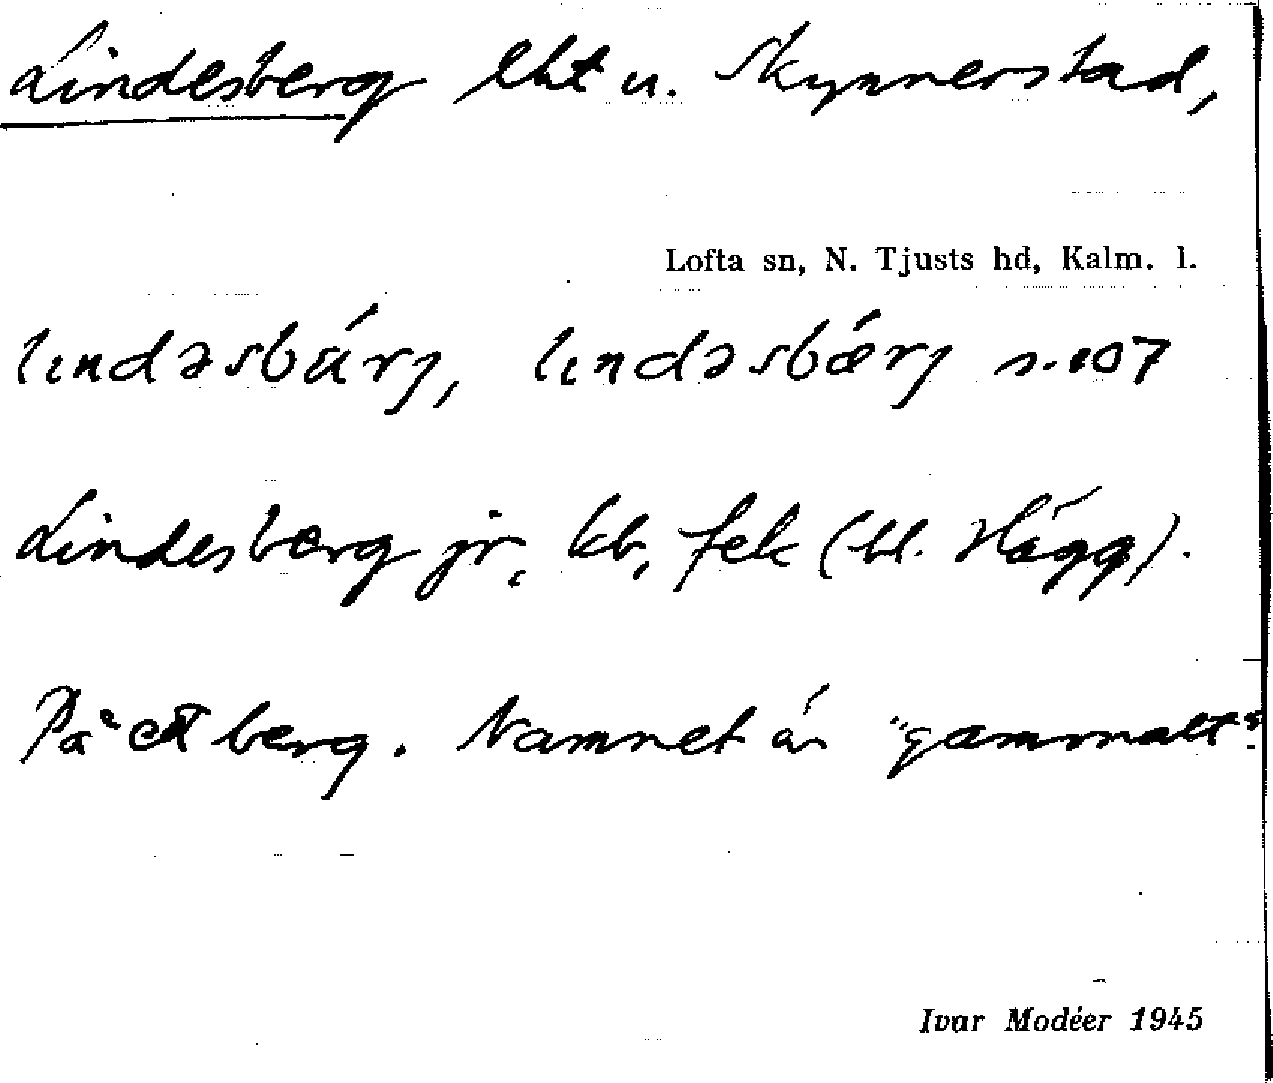 Lindesberg lht u. Skynnerstad,
Lofta sn, N. Tjusts hd, Kalm. l.
lındəsbárj, lındəsbǽrj s. 107
Lindesberg jr, kb, fek (bl. Hägg).
På ett berg. Namnet är "gammalt".
Ivar Modéer 1945